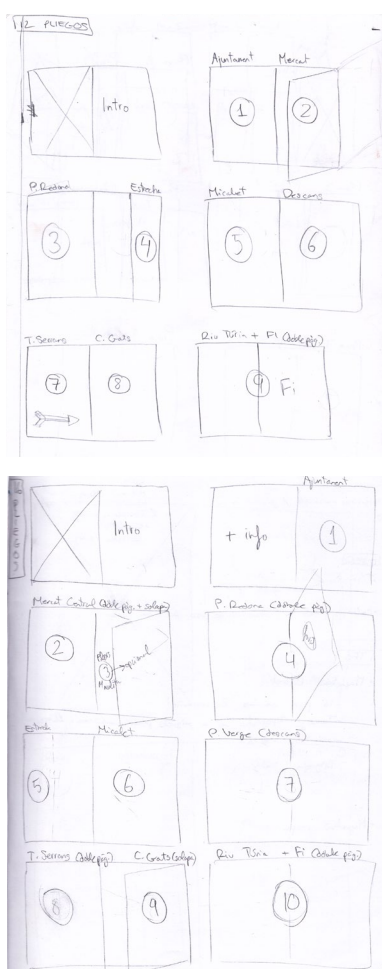 12 PLIEGOS
Intro
Ajuntament Mercat
1 2
P. Redona Estreta
3 4
Micalet Descans
5 6
T. Serrans C. Gats
7 8
Riu Túria + Fi (doble pàg)
9 Fi
PLIEGOS
Intro
Ajuntament
+ info 1
Mercat Central (doble pàg. + solapa)
2
3 → opcional
P. Redona (doble pàg)
4
Estreta Micalet
5 6
P. Verge (descans)
7
T. Serrans (doble pàg) C. Gats (solapa)
8 9
Riu Túria + Fi (doble pàg)
10